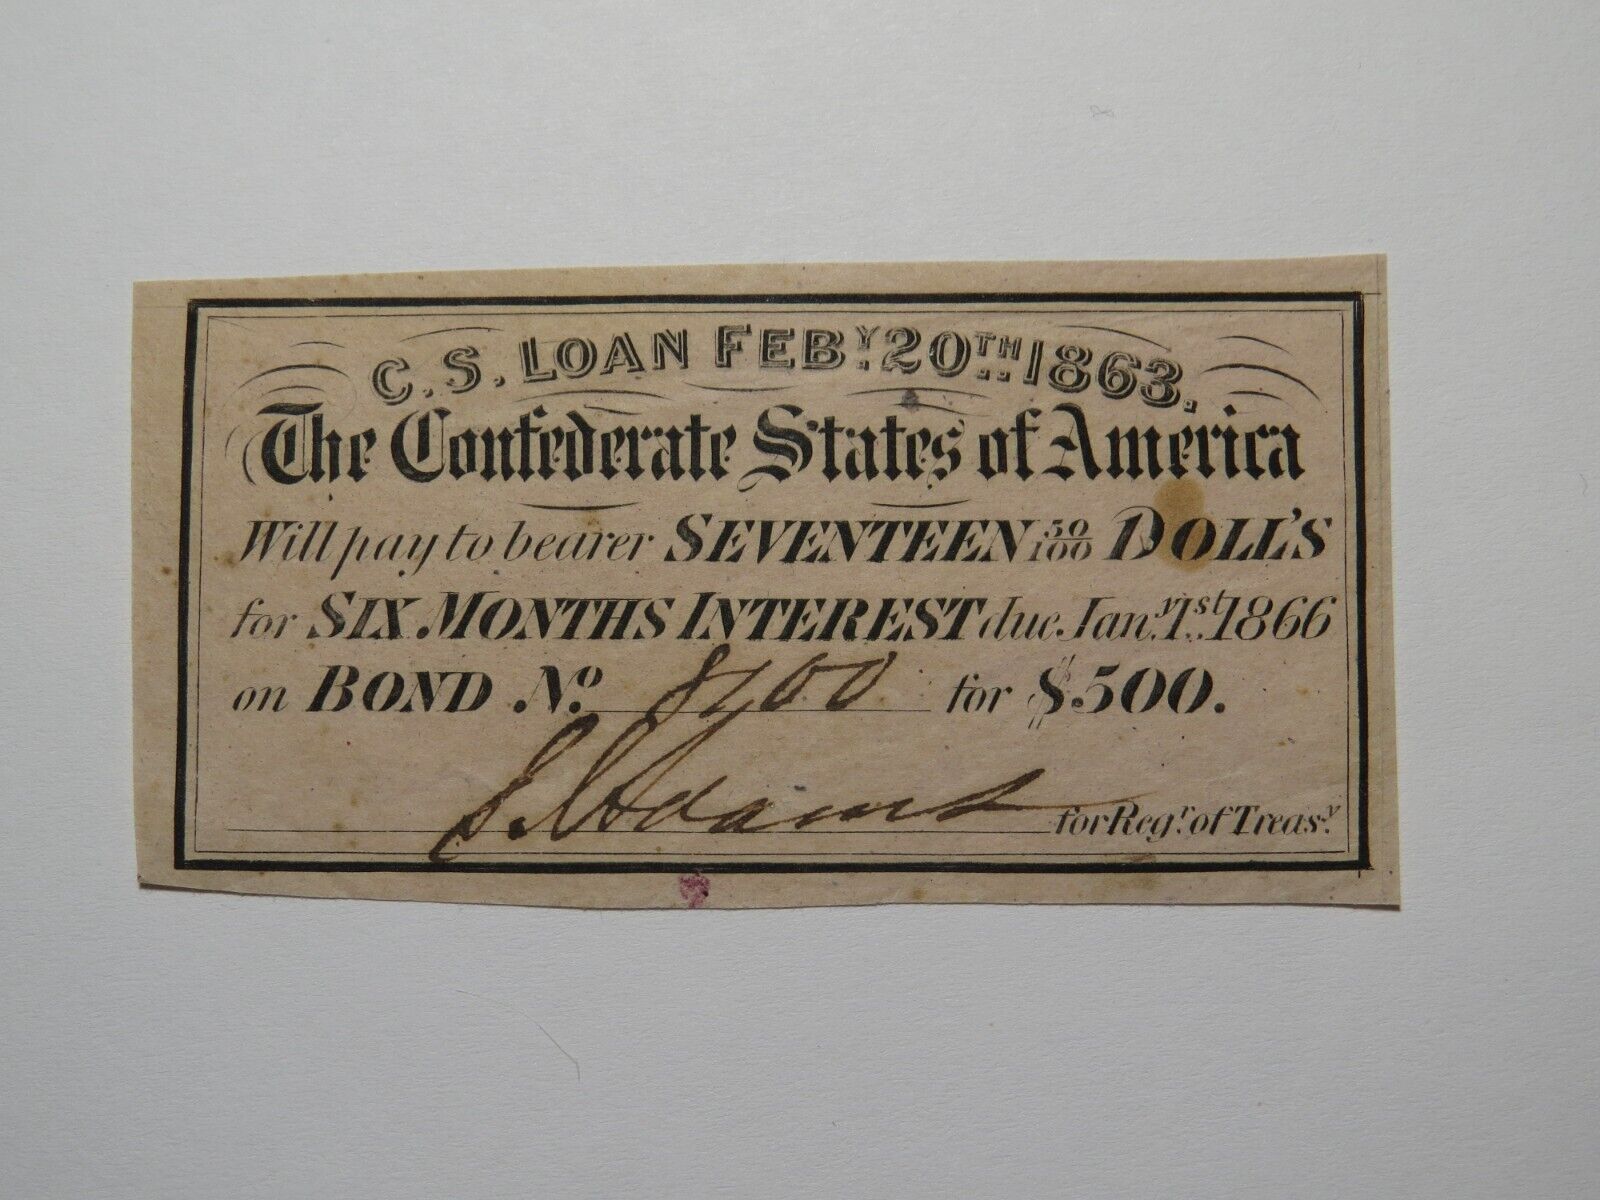 C. S. LOAN FEBY. 20TH 1863.
The Confederate States of America
Will pay to bearer SEVENTEEN 50/100 DOLL'S
for SIX MONTHS INTEREST due Jany. 1st. 1866
on BOND No. 8700 for $500.
S. Adams for Regr. of Treasy.